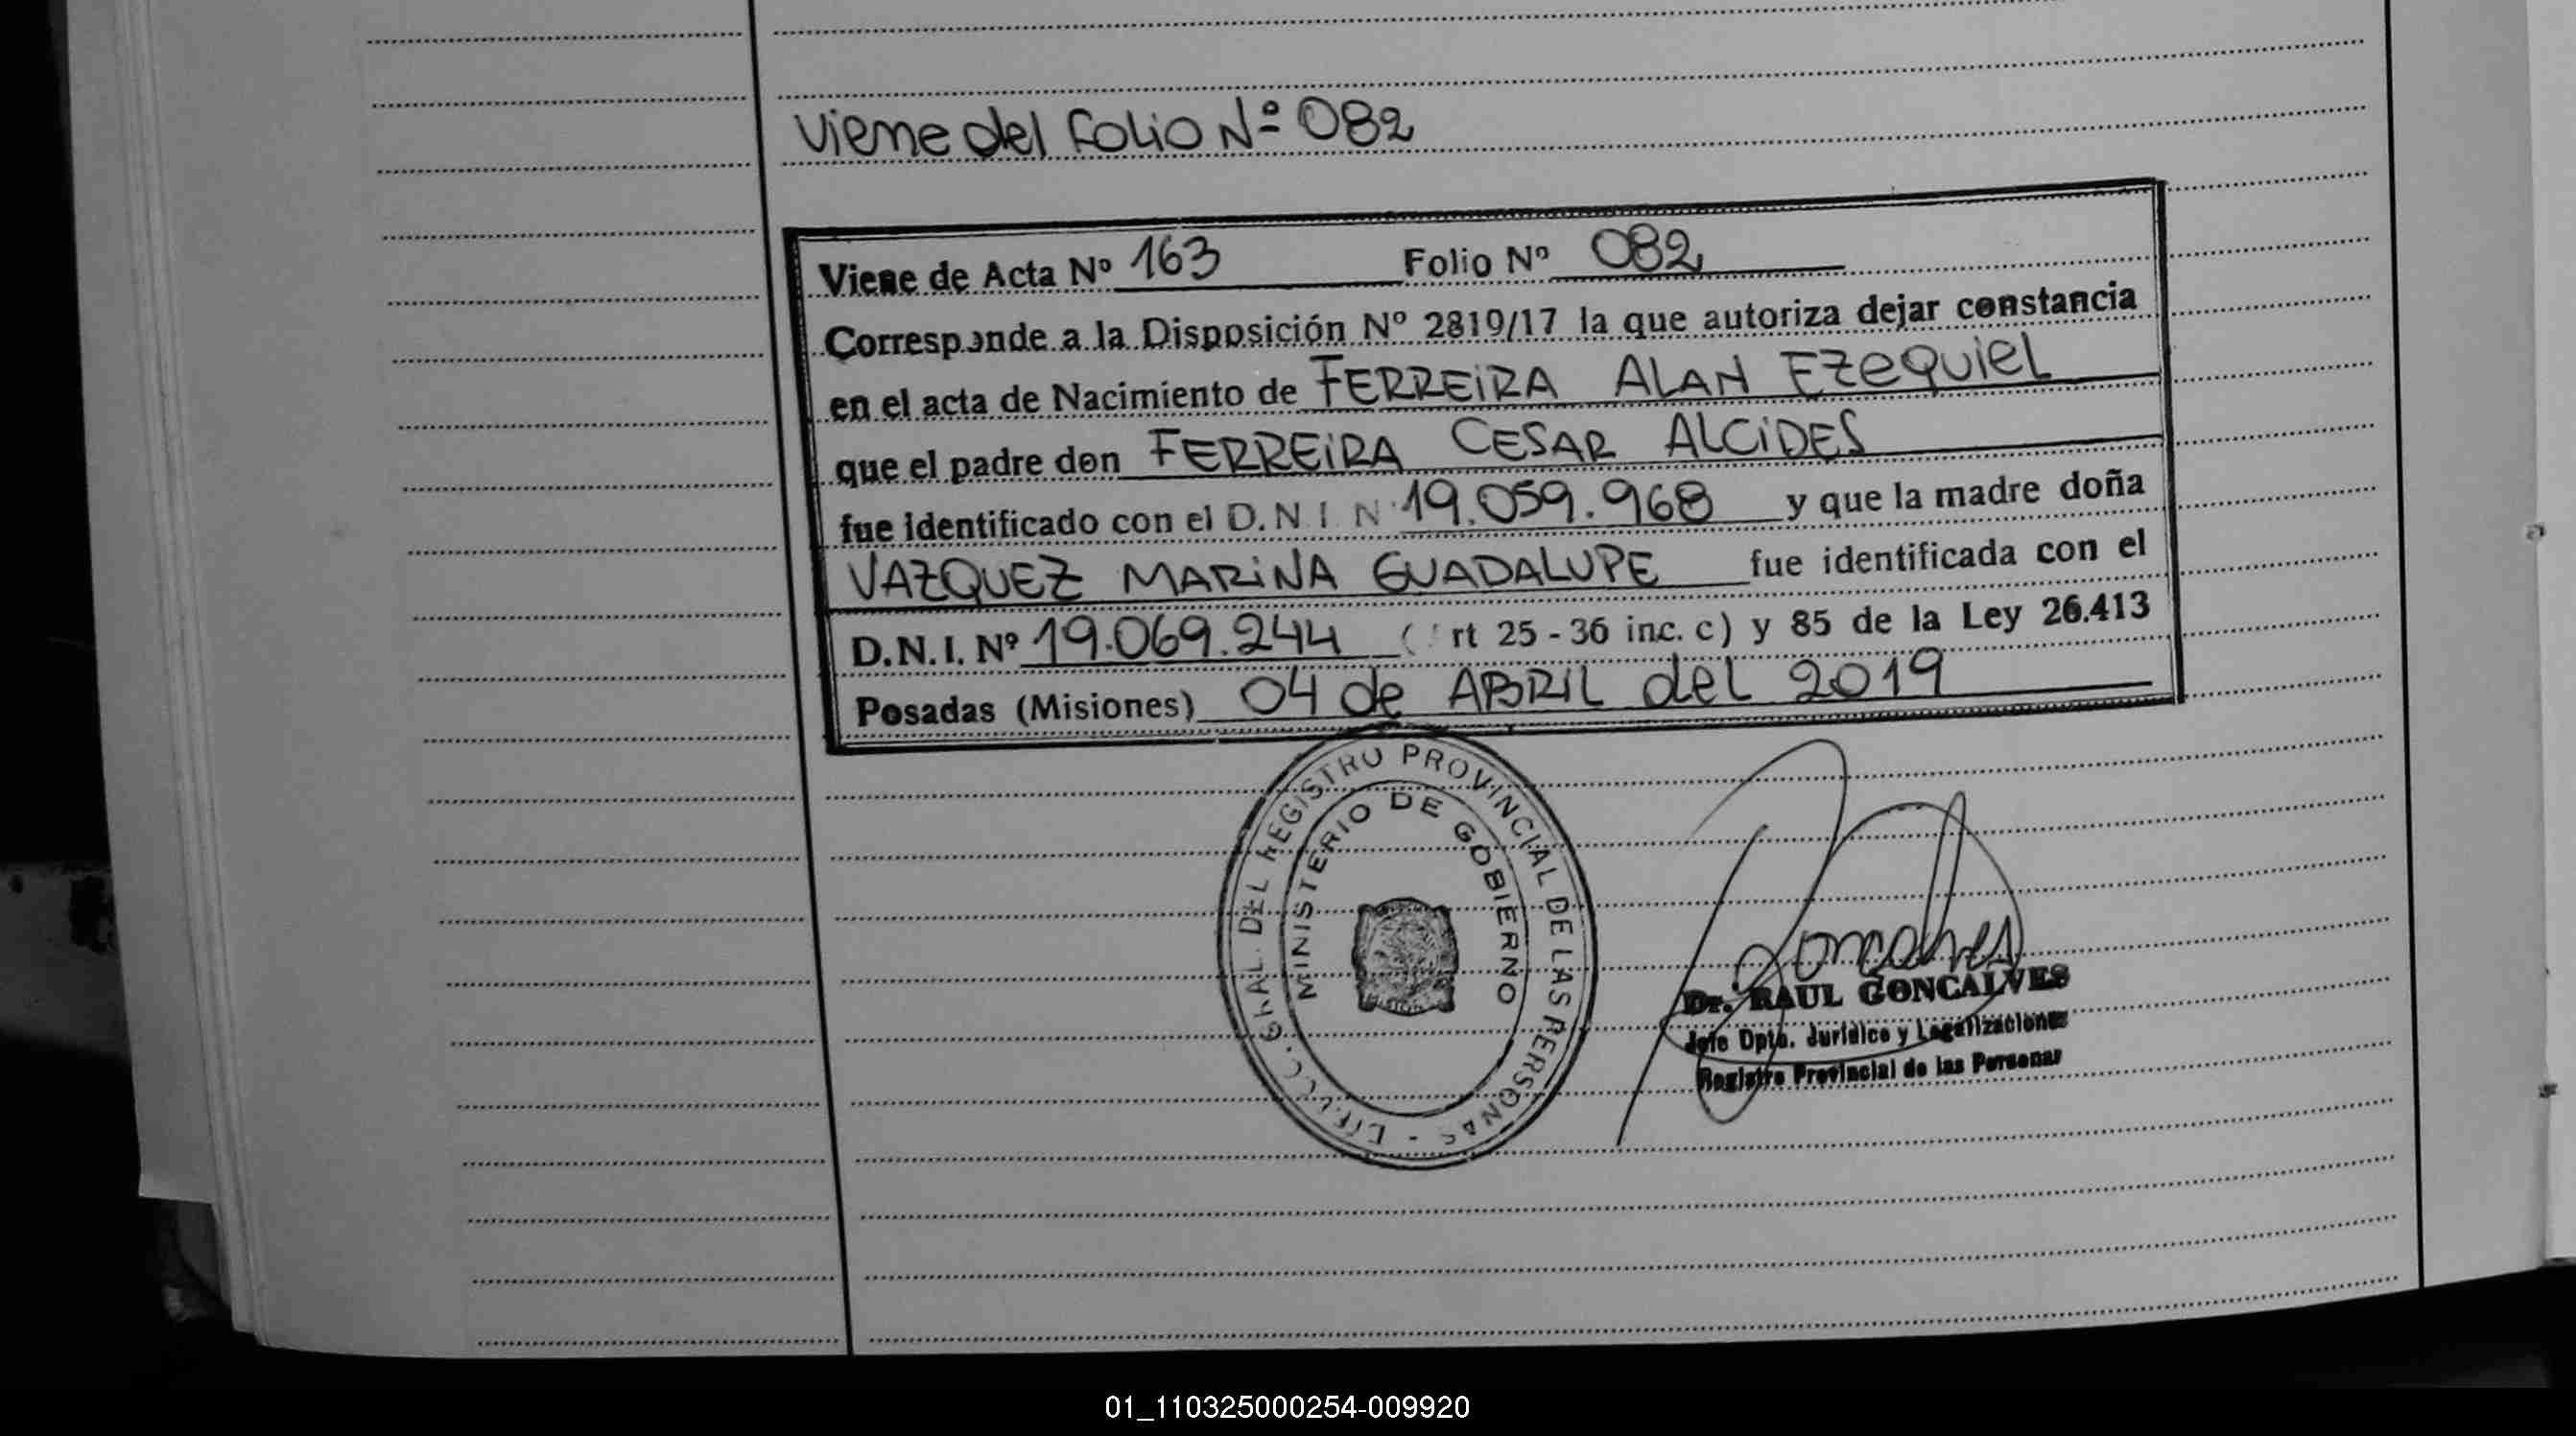 Viene del Folio Nº 082
Viene de Acta Nº 163 Folio Nº 082
Corresponde a la Disposición Nº 2819/17 la que autoriza dejar constancia
en el acta de Nacimiento de FERREIRA ALAN EZEQUIEL
que el padre don FERREIRA CESAR ALCIDES
fue identificado con el D.N.I N 19.059.968 y que la madre doña
VAZQUEZ MARINA GUADALUPE fue identificada con el
D.N.I. Nº 19.069.244 ( rt 25 - 36 inc. c) y 85 de la Ley 26.413
Posadas (Misiones) 04 de ABRIL del 2019
GRAL. DEL REGISTRO PROVINCIAL DE LAS PERSONAS -
MINISTERIO DE GOBIERNO
Goncalves
Dr. RAUL GONCALVES
Jefe Dpto. Jurídico y Legalizaciones
Registro Provincial de las Personas
01_110325000254-009920